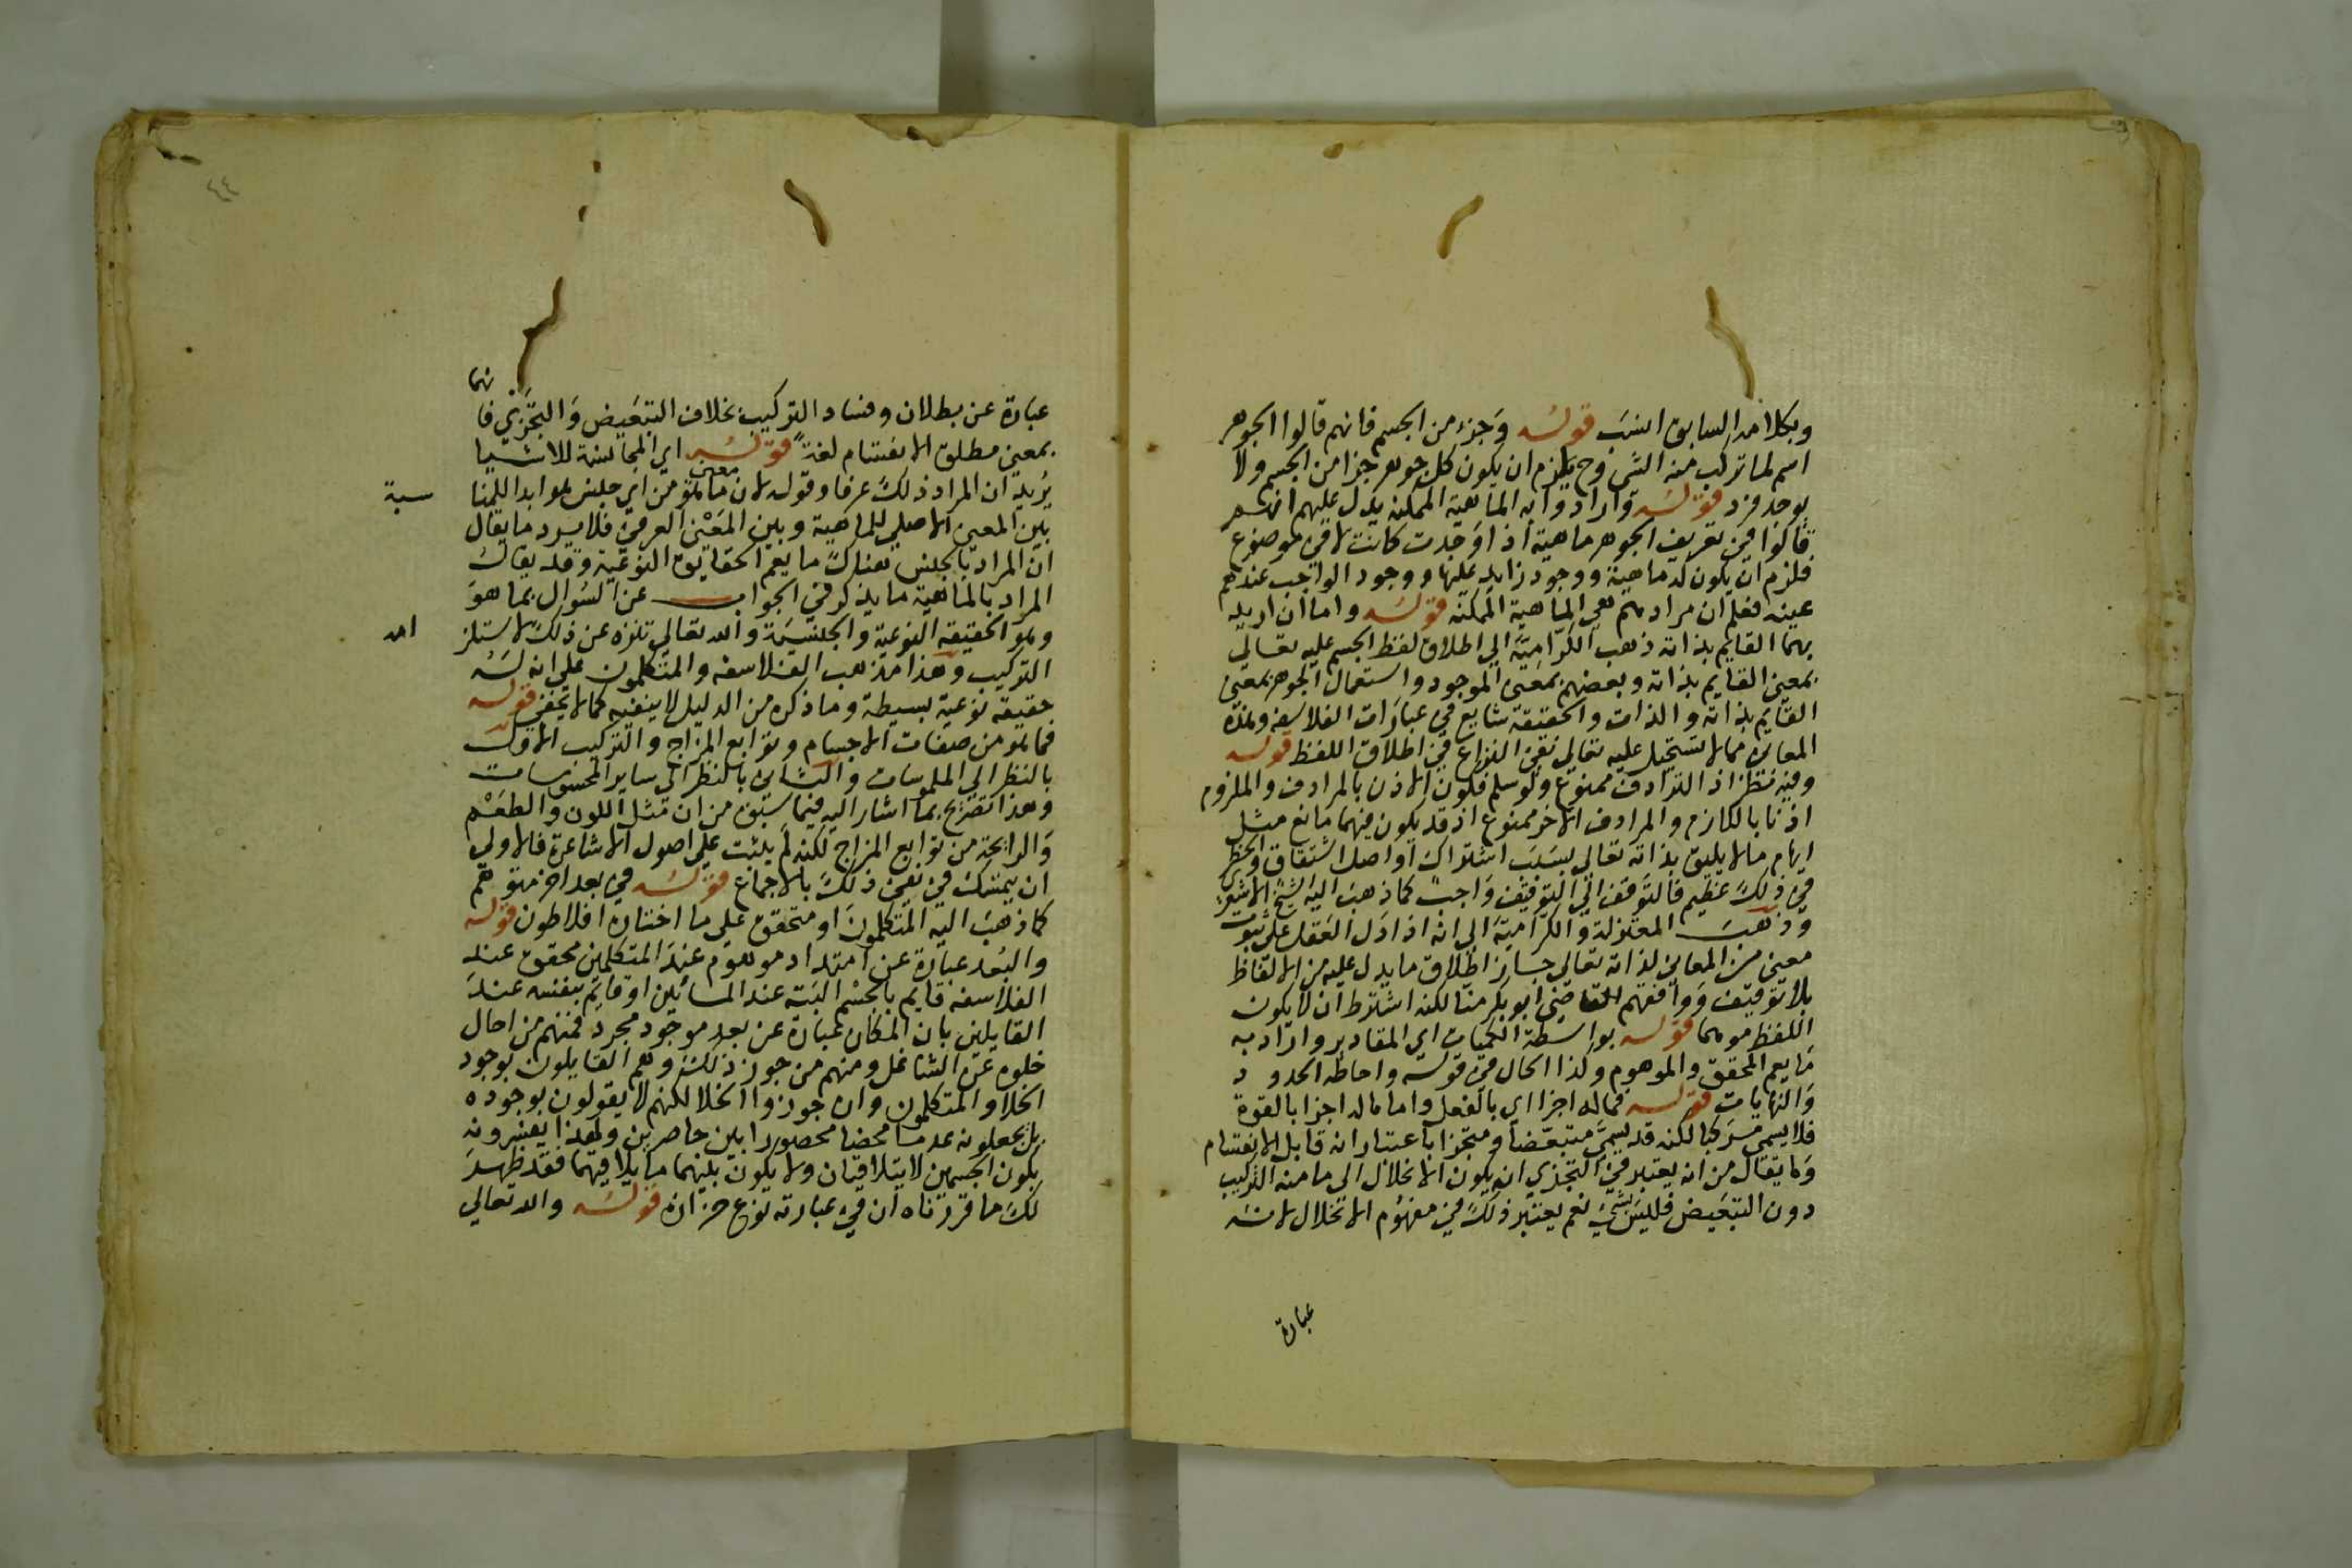 وبكلامه السابق انسب قوله وجزء من الجسم فانهم قالوا الجوهر
اسم لما تركب منه الشي وح يلزم ان يكون كل جوهر جزا من الجسم ولا
يوجد فرد قوله وارادوا به الماهية الممكنه يدل عليهم انهم
قالوا في تعريف الجوهر ماهية اذا وجدت كانت لا في موضوع
فلزم ان يكون له ماهية ووجود زايد عليها ووجود الواجب عندهم
عينه فعلم ان مرادهم هي الماهية الممكنه قوله واما ان اريد
بهما القايم بذاته ذهب الكرامية الي اطلاق لفظ الجسم عليه تعالي
بمعني القايم بذاته وبعضهم بمعني الموجود واستعمال الجوهر بمعني
القايم بذاته والذات والحقيقة شايع في عبارات الفلاسفه وهذه
المعاني مما لا يستحيل عليه تعالي بقي النزاع في اطلاق اللفظ قوله
وفيه نظر اذ الترادف ممنوع ولو سلم فكون الاذن بالمرادف والملزوم
اذنا باللازم والمرادف الاخر ممنوع اذ قد يكون فيهما مانع مثل
ايهام ما لا يليق بذاته تعالي بسبب اشتراك او اصل اشتقاق والخطر
في ذلك عظيم فالتوقف الي التوقيف واجب كما ذهب اليه الشيخ الاشعري
وذهب المعتزلة والكرامية الي انه اذا دل العقل علي ثبوت
معني من المعاني لذاته تعالي جاز اطلاق ما يدل عليه من الالفاظ
بلا توقيف ووافقهم القاضي ابو بكر منا لكنه اشترط ان لا يكون
اللفظ موهما قوله بواسطة الكميات اي المقادير واراد به
ما يعم المحقق والموهوم وكذا الحال في قوله واحاطه الحدود
والنهايات قوله فما له اجزا اي بالفعل واما ما له اجزا بالقوة
فلا يسمي مركبا لكنه قد يسمي متبعضا ومتجزا باعتبار انه قابل الانقسام
وما يقال من انه يعتبر في التجزي ان يكون الانحلال الي ما منه التركيب
دون التبعيض فليس بشي نعم يعتبر ذلك في مفهوم الانحلال لانه
عبارة
٤٤
عبارة عن بطلان وفساد التركيب بخلاف التبعيض والتجزي فا
نهما
بمعني مطلق الانقسام لغة قوله اي المجانسة للاشيا
يريد ان المراد ذلك عرفا وقوله لان معني ما هو من اي جنس هو ابدا للمنا
سبة
بين المعني الاصلي للماهية وبين المعني العرفي فلا يرد ما يقال
ان المراد بالجنس هناك ما يعم الحقايق النوعية وقد يقال
المراد بالماهية ما يذكر في الجواب عن السوال بما هو
وهو الحقيقة النوعية والجنسية والله تعالي تنزه عن ذلك لاستلز
امه
التركيب وهذا مذهب الفلاسفه والمتكلمون علي انه له
حقيقه نوعية بسيطة وما ذكره من الدليل لا ينفيه كما لا يخفي قوله
فما هو من صفات الاجسام وتوابع المزاج والتركيب الاول
بالنظر الي الملموسات والثاني بالنظر الي ساير المحسوسات
وهذا تصريح بما اشار اليه فيما سبق من ان مثل اللون والطعم
والرايحة من توابع المزاج لكنه لم يثبت علي اصول الاشاعرة فالاولي
ان يتمسك في نفي ذلك بالاجماع قوله في بعد اخر متوهم
كما ذهب اليه المتكلمون او متحقق علي ما اختاره افلاطون قوله
والبعد عبارة عن امتداد موهوم عند المتكلمين محقق عند
الفلاسفه قايم بالجسم البته عند المشائين او قايم بنفسه عند
القايلين بان المكان عبارة عن بعد موجود مجرد فمنهم من احال
خلوه عن الشاغل ومنهم من جوز ذلك وهم القايلون بوجود
الخلا والمتكلمون وان جوزوا الخلا لكنهم لا يقولون بوجوده
بل يجعلونه عدما محضا محصورا بين حاصرين ولهذا يفسرونه
بكون الجسمين لا يتلاقيان ولا يكون بينهما ما يلاقيهما فقد ظهر
لك ما قررناه ان في عبارته نوع حزازة قوله والله تعالي